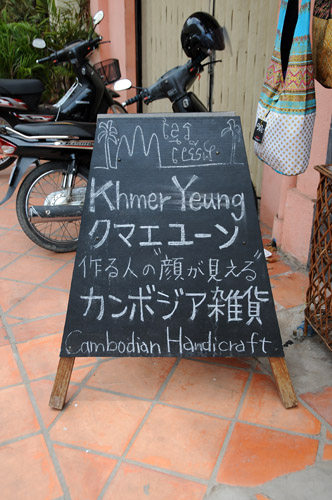 ខ្មែរ
យើង
Khmer Yeung
クマエユーン
作る人の"顔が見える"
カンボジア雑貨
Cambodian Handicraft